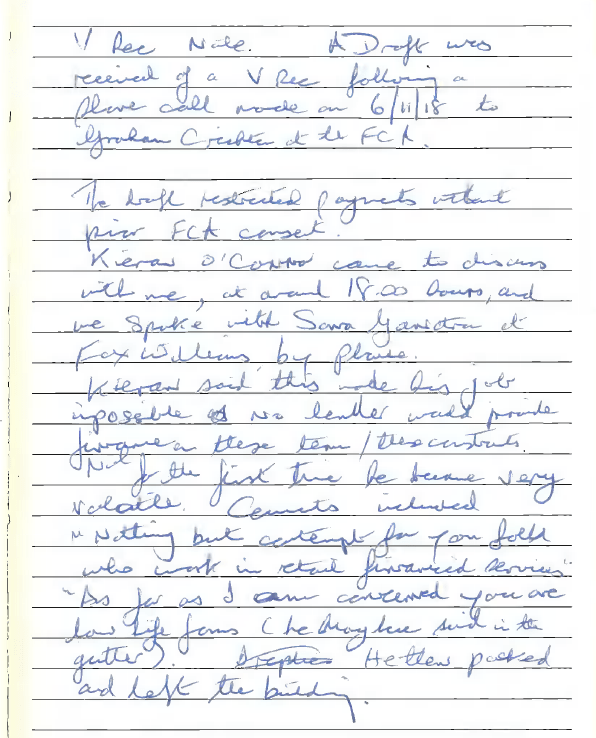 V Rec Note. A Draft was
received of a V Rec following a
phone call made on 6/11/18 to
Graham at the FCA.
The draft restricted payments without
prior FCA consent.
Kieran O'Connor came to discuss
with me, at around 18.00 hours, and
we spoke with Sona Ganatra at
Fox Williams, by phone.
Kieran said this made his job
imposible as No lender would provide
finance on these terms / these constraints.
Not for the first time he became very
volatile. Comments included
"Nothing but contempt for you folk
who work in retail financial services"
"As far as I am concerned you are
low life forms (he may have said in the
gutter). He then packed
and left the building.